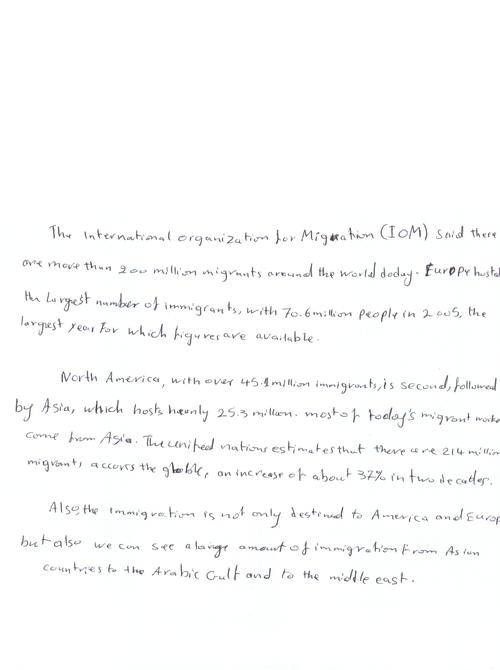 The International organization for Migration (IOM) said there
are more than 200 million migrants around the world doday. Europe hosted
the Largest number of immigrants, with 70.6 million people in 2005, the
largest year for which figures are available.
North America, with over 45.1 million immigrants, is second, followed
by Asia, which hosts hearnly 25.3 million. most of today's migrant worke
come from Asia. The unified nations estimates that there are 214 million
migrants accors the globle, an increase of about 37% in two decades.
Also the immigration is not only destined to America and Europ
but also we can see a large amount of immigration from Asian
countries to the Arabic Gulf and to the middle east.